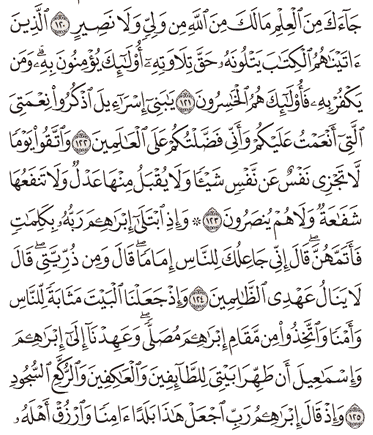 جَآءَكَ مِنَ ٱلْعِلْمِ مَا لَكَ مِنَ ٱللَّهِ مِن وَلِىٍّ وَلَا نَصِيرٍ ١٢٠ ٱلَّذِينَ
ءَاتَيْنَٰهُمُ ٱلْكِتَٰبَ يَتْلُونَهُۥ حَقَّ تِلَاوَتِهِۦٓ أُو۟لَٰٓئِكَ يُؤْمِنُونَ بِهِۦ ۗ وَمَن
يَكْفُرْ بِهِۦ فَأُو۟لَٰٓئِكَ هُمُ ٱلْخَٰسِرُونَ ١٢١ يَٰبَنِىٓ إِسْرَٰٓءِيلَ ٱذْكُرُوا۟ نِعْمَتِىَ
ٱلَّتِىٓ أَنْعَمْتُ عَلَيْكُمْ وَأَنِّى فَضَّلْتُكُمْ عَلَى ٱلْعَٰلَمِينَ ١٢٢ وَٱتَّقُوا۟ يَوْمًا
لَّا تَجْزِى نَفْسٌ عَن نَّفْسٍ شَيْـًٔا وَلَا يُقْبَلُ مِنْهَا عَدْلٌ وَلَا تَنفَعُهَا
شَفَٰعَةٌ وَلَا هُمْ يُنصَرُونَ ١٢٣ ۞ وَإِذِ ٱبْتَلَىٰٓ إِبْرَٰهِـۧمَ رَبُّهُۥ بِكَلِمَٰتٍ
فَأَتَمَّهُنَّ ۖ قَالَ إِنِّى جَاعِلُكَ لِلنَّاسِ إِمَامًا ۖ قَالَ وَمِن ذُرِّيَّتِى ۖ قَالَ
لَا يَنَالُ عَهْدِى ٱلظَّٰلِمِينَ ١٢٤ وَإِذْ جَعَلْنَا ٱلْبَيْتَ مَثَابَةً لِّلنَّاسِ
وَأَمْنًا وَٱتَّخِذُوا۟ مِن مَّقَامِ إِبْرَٰهِـۧمَ مُصَلًّى ۖ وَعَهِدْنَآ إِلَىٰٓ إِبْرَٰهِـۧمَ
وَإِسْمَٰعِيلَ أَن طَهِّرَا بَيْتِىَ لِلطَّآئِفِينَ وَٱلْعَٰكِفِينَ وَٱلرُّكَّعِ ٱلسُّجُودِ
١٢٥ وَإِذْ قَالَ إِبْرَٰهِـۧمُ رَبِّ ٱجْعَلْ هَٰذَا بَلَدًا ءَامِنًا وَٱرْزُقْ أَهْلَهُۥ